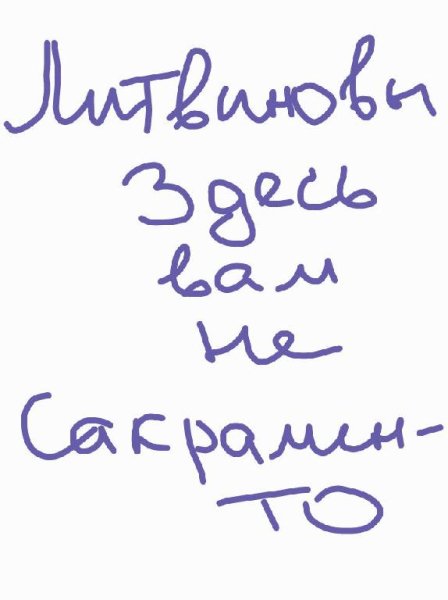 Литвиновы
Здесь
вам
не
Сакрамен-
ТО